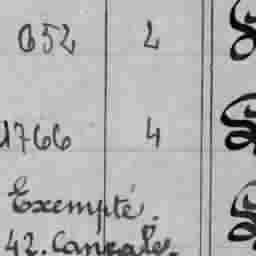 652 2
1766 4
Exempté.
42. Cancale.